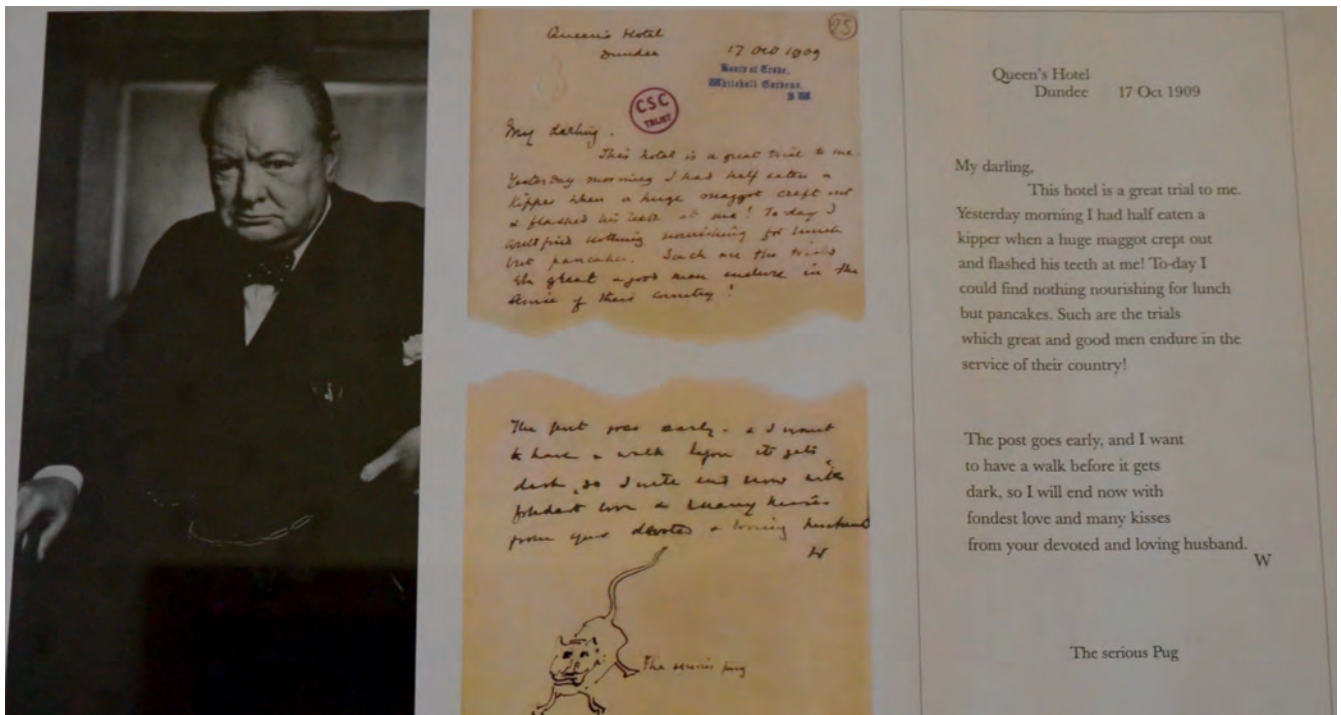 Queen's Hotel
Dundee
17 Oct 1909
25
Board of Trade,
Whitehall Gardens,
S.W.
CSC
TRUST
My darling.
This hotel is a great trial to me.
Yesterday morning I had half eaten a
kipper when a huge maggot crept out
& flashed his teeth at me! To-day I
could find nothing nourishing for lunch
but pancakes. Such are the trials
wh great & good men endure in the
service of their country!
The post goes early - & I want
to have a walk before it gets
dark, so I will end now with
fondest love & many kisses
from your devoted & loving husband
W
The serious pug
Queen's Hotel
Dundee 17 Oct 1909
My darling,
This hotel is a great trial to me.
Yesterday morning I had half eaten a
kipper when a huge maggot crept out
and flashed his teeth at me! To-day I
could find nothing nourishing for lunch
but pancakes. Such are the trials
which great and good men endure in the
service of their country!
The post goes early, and I want
to have a walk before it gets
dark, so I will end now with
fondest love and many kisses
from your devoted and loving husband.
W
The serious Pug